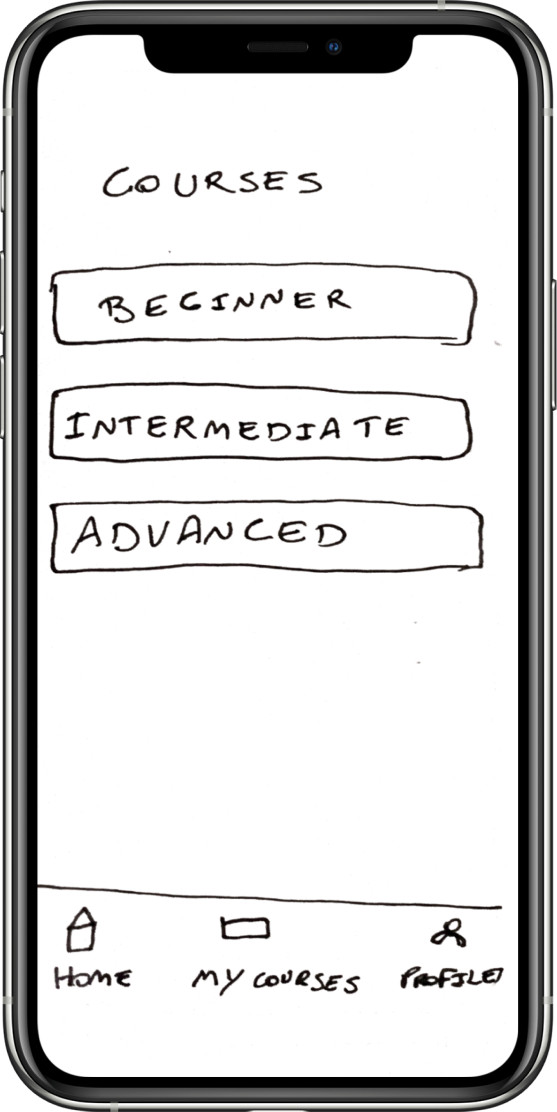 COURSES
BEGINNER
INTERMEDIATE
ADVANCED
HOME MY COURSES PROFILE